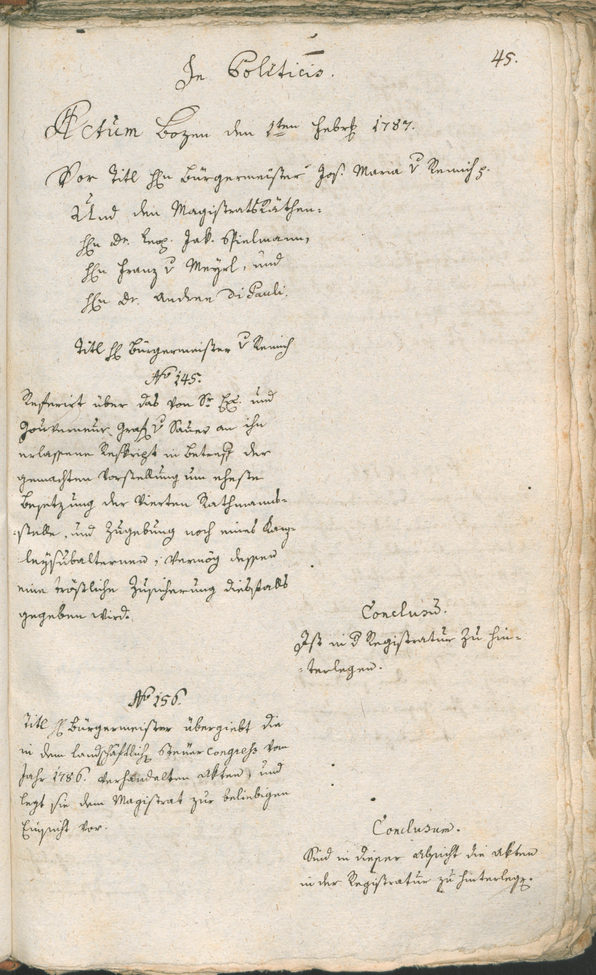 45.
In Politicis.
Actum Bozen den 1ten Febr: 1787.
Vor Titl Hhn Bürgermeister Jos. Maria v Remich p.
Und den Magistrats Räthen:
Hhn Dr. Leop. Jak. Spielmann,
Hhn Franz v Meyrl, und
Hhn Dr. Andree Di Pauli.
Titl H: Bürgermeister v Remich
No 145.
Referirt über das von Sr Ex: und
Gouverneur Graf v Sauer an ihn
erlassene Reskript in Betreff der
gemachten Vorstellung um eheste
Besetzung der Vierten Rathmanns-
stelle, und Zugebung noch eines Kanz-
leysubalternen; vermög dessen
eine tröstliche Zusicherung diesfalls
gegeben wird.
Conclusū.
Ist in d Registratur zu hin-
terlegen.
No 156.
Titl H: Bürgermeister übergiebt die
in dem landschäftlich: Steuer Congreß vom
Jahr 1786. verhandelten Akten, und
legt sie dem Magistrat zur beliebigen
Einsicht vor.
Conclusum.
Sind in dieser Absicht die Akten
in der Registratur zu hinterleg:.